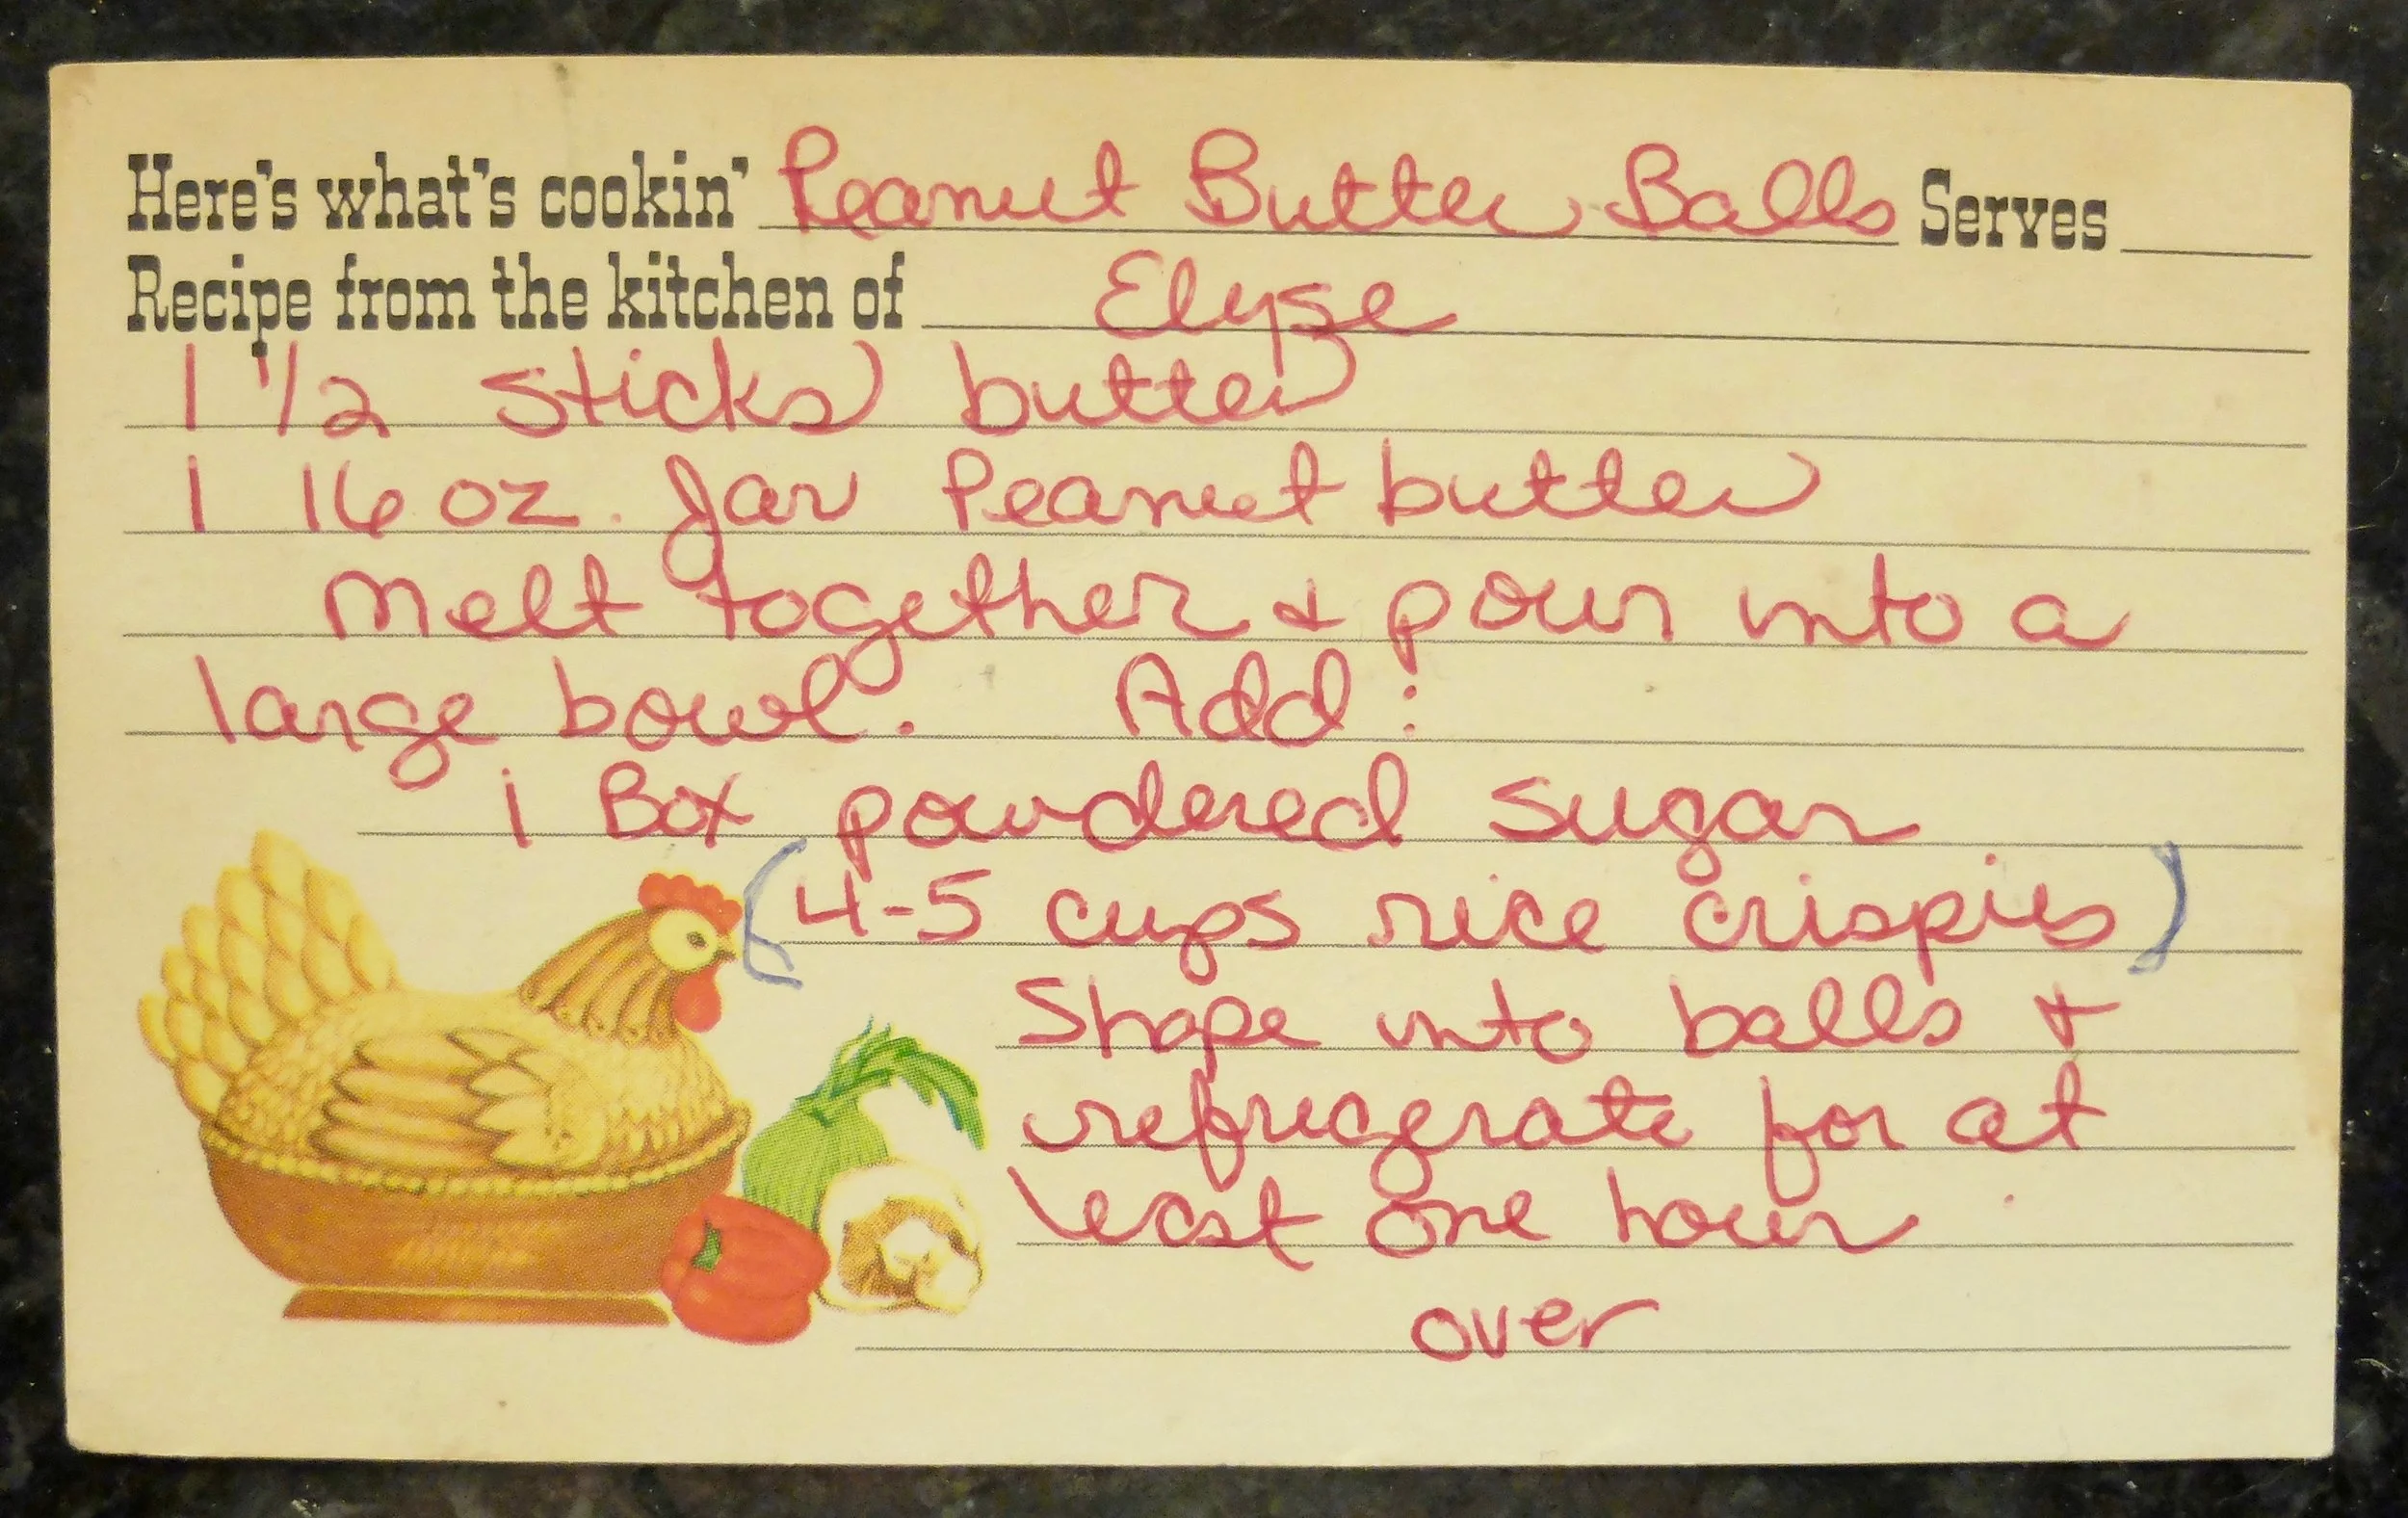 Here's what's cookin' Peanut Butter Balls Serves
Recipe from the kitchen of Elyse
1 1/2 sticks butter
1 16 oz. Jar Peanut butter
Melt together & pour into a
large bowl. Add:
1 Box powdered sugar
(4-5 cups rice crispies)
Shape into balls &
refrigerate for at
least one hour.
over